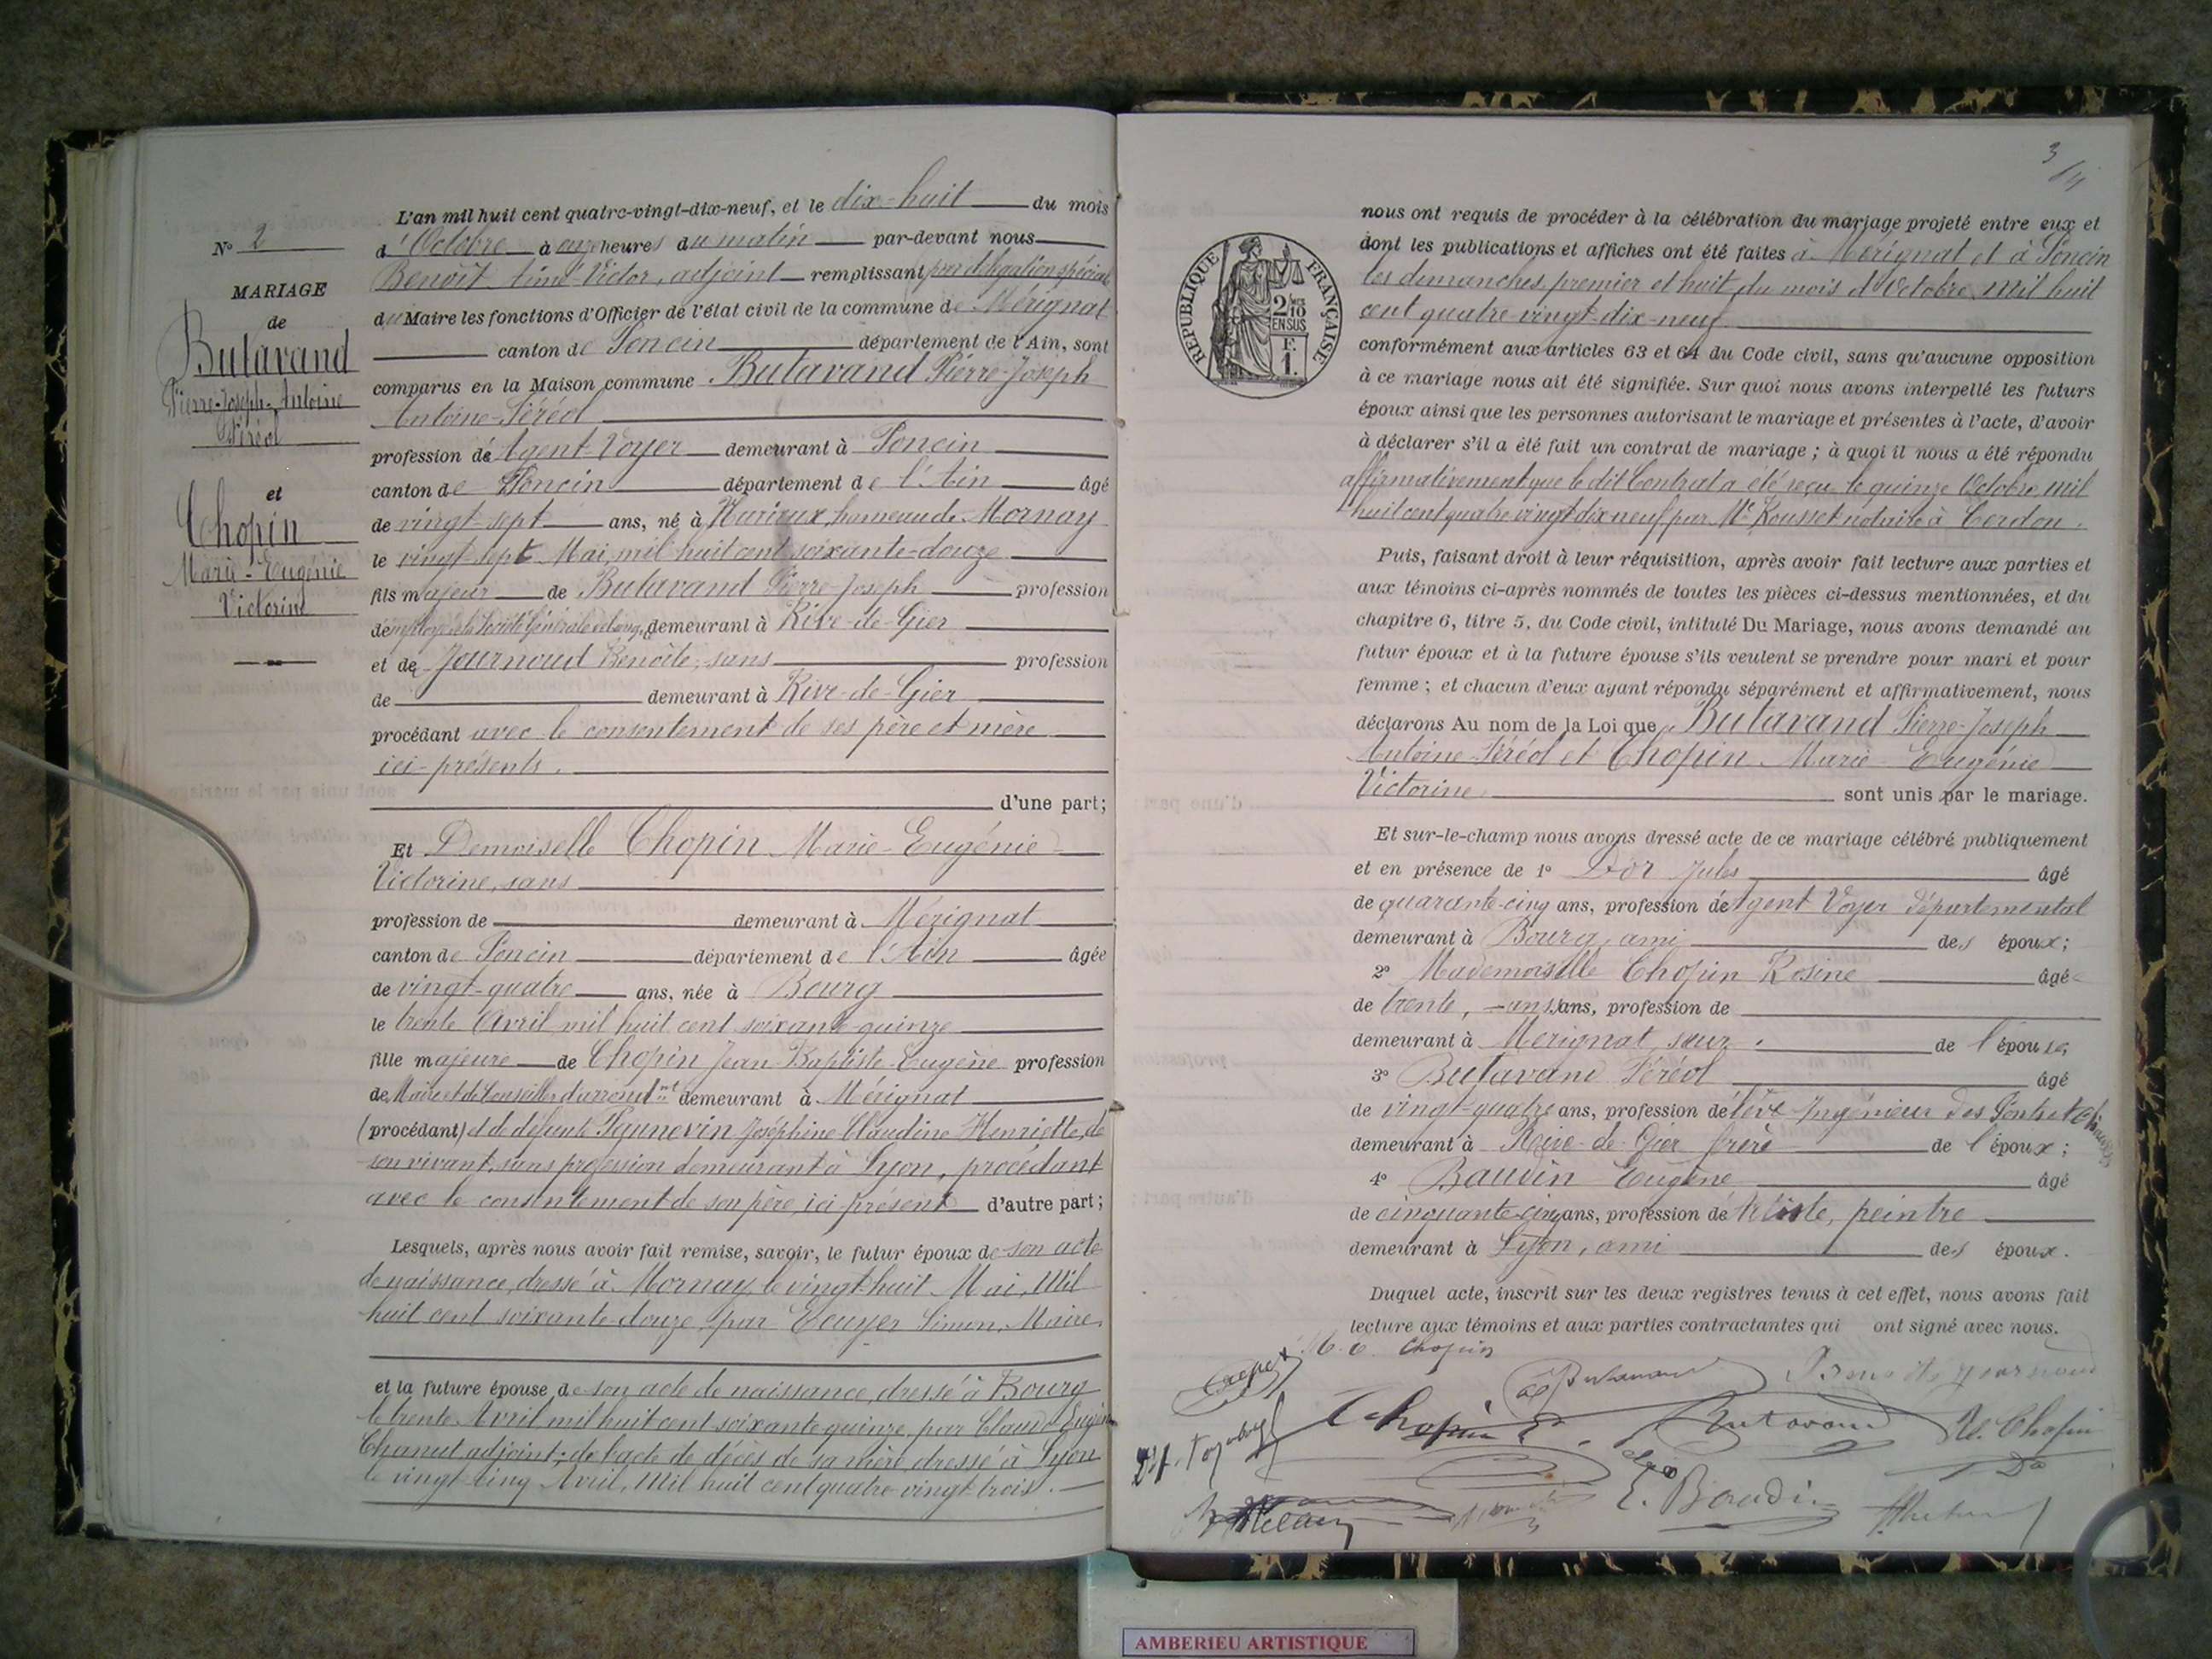 N° 2
MARIAGE
de
Butavand
Pierre-Joseph-Antoine
Féréol
et
Chopin
Marie-Eugénie
Victorine
L'an mil huit cent quatre-vingt-dix-neuf, et le dix-huit du mois
d'Octobre à onze heures du matin par-devant nous
Benoit Aimé Victor, adjoint remplissant par délégation spéciale
du Maire les fonctions d'Officier de l'état civil de la commune de Mérignat
canton de Poncin département de l'Ain, sont
comparus en la Maison commune Butavand Pierre-Joseph
Antoine-Féréol
profession de Agent-Voyer demeurant à Poncin
canton de Poncin département de l'Ain âgé
de vingt-sept ans, né à hameau de Mornay
le vingt-sept Mai, mil huit cent soixante-douze
fils majeur de Butavand Pierre-Joseph profession
demeurant à Rive-de-Gier
et de Journoud Benoîte, sans profession
de demeurant à Rive-de-Gier
procédant avec le consentement de ses père et mère
ici-présents.
d'une part;
Et Demoiselle Chopin Marie-Eugénie
Victorine, sans
profession de demeurant à Mérignat
canton de Poncin département de l'Ain âgée
de vingt-quatre ans, née à Bourg
le trente Avril mil huit cent soixante-quinze
fille majeure de Chopin Jean-Baptiste-Eugène profession
de Maire et de Conseiller d'arrond.nt demeurant à Mérignat
(procédant) et de défunte Joséphine Claudine Henriette, de
son vivant, sans profession demeurant à Lyon, procédant
avec le consentement de son père, ici présent d'autre part;
Lesquels, après nous avoir fait remise, savoir, le futur époux de son acte
de naissance, dressé à Mornay, le vingt-huit Mai, Mil
huit cent soixante-douze, par Simon, Maire,
et la future épouse, de son acte de naissance, dressé à Bourg
le trente Avril mil huit cent soixante quinze, par Claude Eugène
Chanut adjoint; de l'acte de décès de sa mère, dressé à Lyon
le vingt-cinq Avril, Mil huit cent quatre-vingt-trois.
3
RÉPUBLIQUE FRANÇAISE
2/10
EN SUS
F.
1.
nous ont requis de procéder à la célébration du mariage projeté entre eux et
dont les publications et affiches ont été faites à Mérignat et à Poncin
les dimanches, premier et huit du mois d'Octobre, mil huit
cent quatre vingt-dix-neuf
conformément aux articles 63 et 64 du Code civil, sans qu'aucune opposition
à ce mariage nous ait été signifiée. Sur quoi nous avons interpellé les futurs
époux ainsi que les personnes autorisant le mariage et présentes à l'acte, d'avoir
à déclarer s'il a été fait un contrat de mariage ; à quoi il nous a été répondu
affirmativement que le dit Contrat a été reçu le quinze Octobre, mil
huit cent quatre vingt dix neuf par Me Rousset notaire à Cerdon.
Puis, faisant droit à leur réquisition, après avoir fait lecture aux parties et
aux témoins ci-après nommés de toutes les pièces ci-dessus mentionnées, et du
chapitre 6, titre 5, du Code civil, intitulé Du Mariage, nous avons demandé au
futur époux et à la future épouse s'ils veulent se prendre pour mari et pour
femme ; et chacun d'eux ayant répondu séparément et affirmativement, nous
déclarons Au nom de la Loi que Butavand Pierre-Joseph
Antoine-Féréol et Chopin Marie-Eugénie
Victorine sont unis par le mariage.
Et sur-le-champ nous avons dressé acte de ce mariage célébré publiquement
et en présence de 1° Dor Jules âgé
de quarante-cinq ans, profession de Agent Voyer départemental
demeurant à Bourg, ami des époux;
2° Mademoiselle Chopin Rosine âgée
de trente, ans ans, profession de
demeurant à Mérignat, sœur de l'épouse;
3° Butavand Féréol âgé
de vingt-quatre ans, profession de élève Ingénieur des Ponts et Chaussées
demeurant à Rive-de-Gier frère de l'époux;
4° Baudin Eugène âgé
de cinquante-cinq ans, profession de Artiste, peintre
demeurant à Lyon, ami des époux.
Duquel acte, inscrit sur les deux registres tenus à cet effet, nous avons fait
lecture aux témoins et aux parties contractantes qui ont signé avec nous.
M. E. Chopin
Chopin E. Butavand R. Chopin
E. Baudin
AMBERIEU ARTISTIQUE